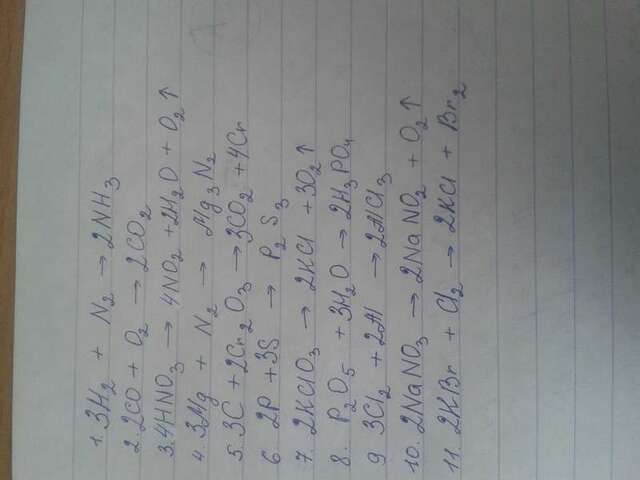 1. 3H₂ + N₂ → 2NH₃
2. 2CO + O₂ → 2CO₂
3. 4HNO₃ → 4NO₂ + 2H₂O + O₂↑
4. 3Mg + N₂ → Mg₃N₂
5. 3C + 2Cr₂O₃ → 3CO₂ + 4Cr
6. 2P + 3S → P₂S₃
7. 2KClO₃ → 2KCl + 3O₂↑
8. P₂O₅ + 3H₂O → 2H₃PO₄
9. 3Cl₂ + 2Al → 2AlCl₃
10. 2NaNO₃ → 2NaNO₂ + O₂↑
11. 2KBr + Cl₂ → 2KCl + Br₂